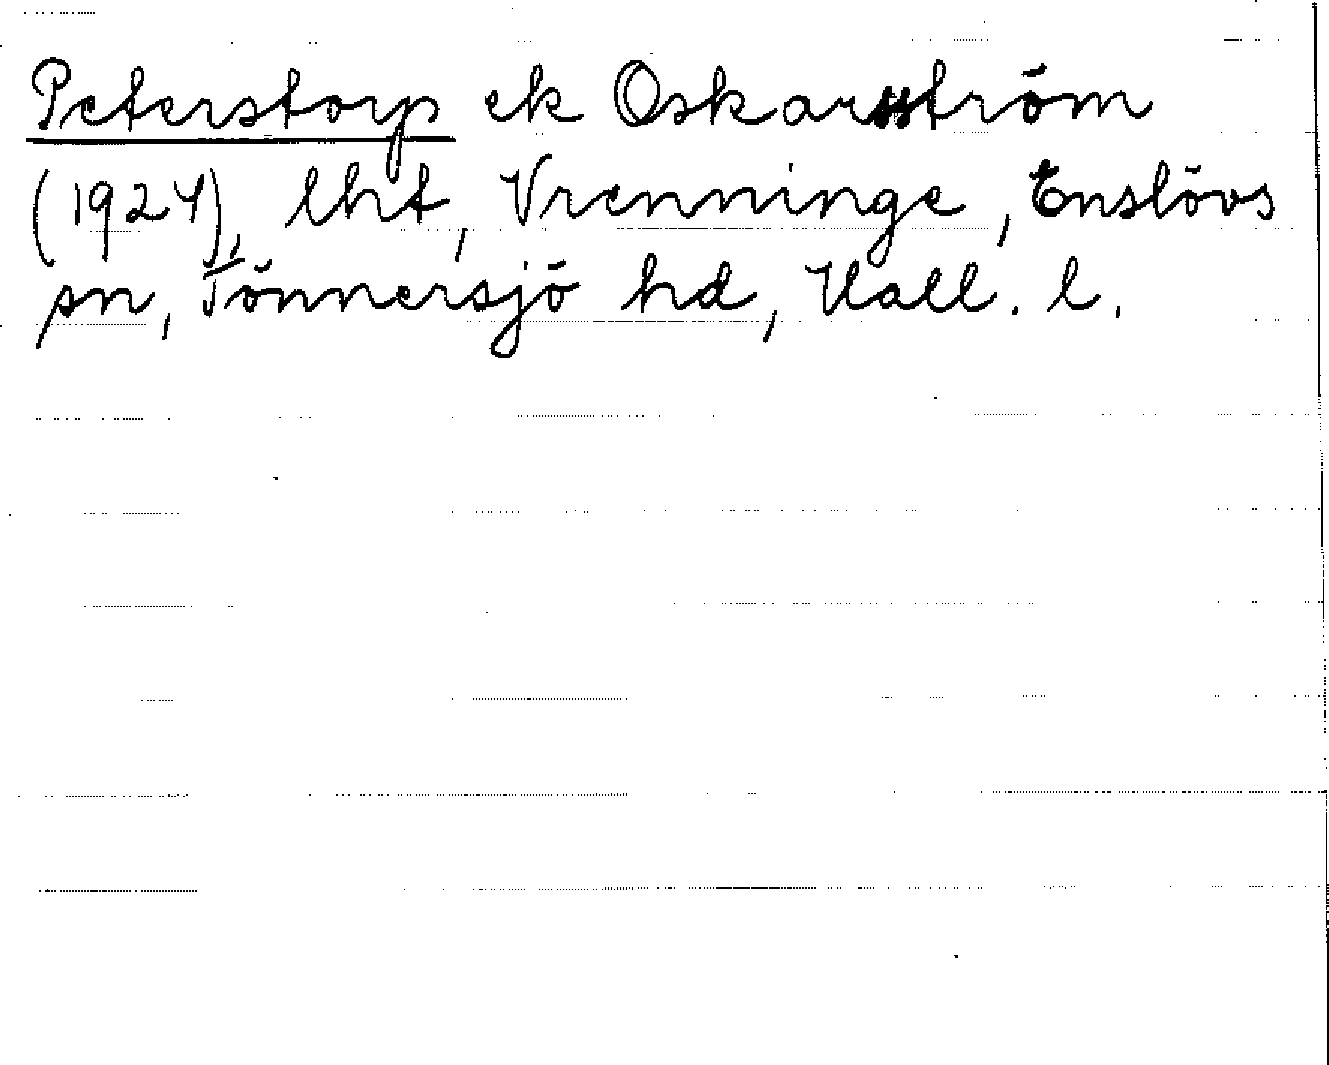 Peterstorp ek Oskarström
(1924), lht, Vrenninge, Enslövs
sn, Tönnersjö hd, Hall. l.